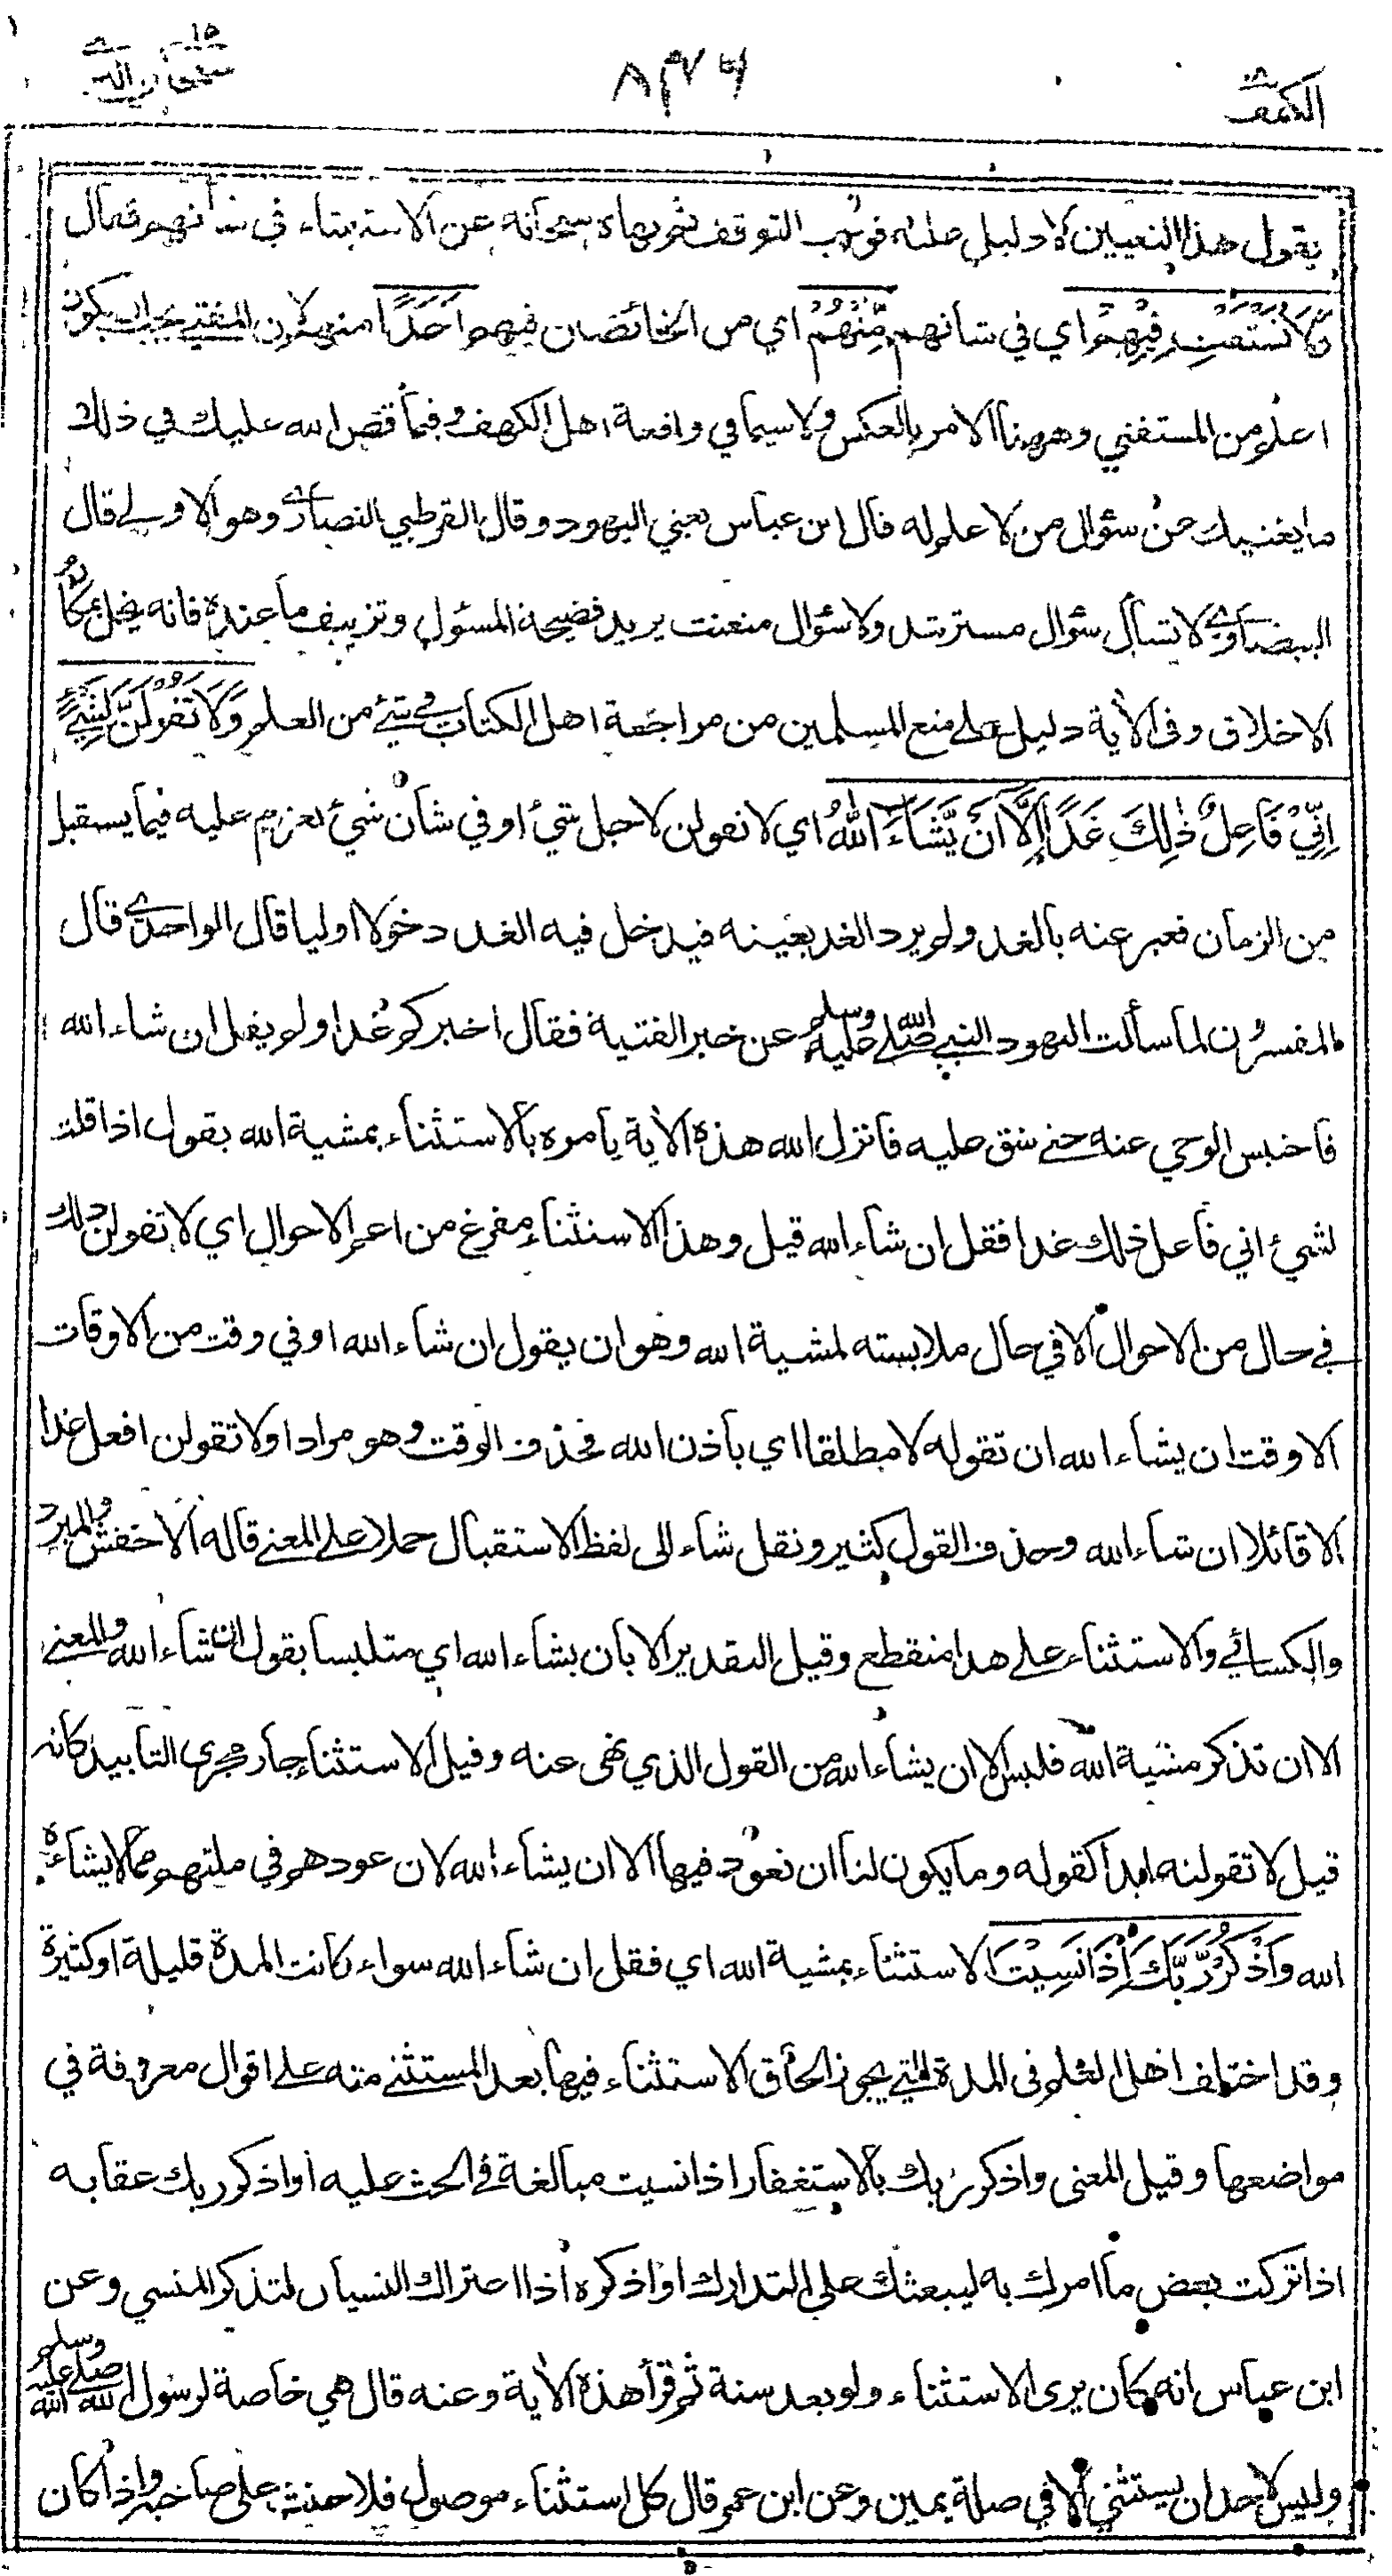 الكهف
٨٣٦
سبحن الذي ١٥
يقول هذا التعيين لا دليل عليه فوجب التوقف ثم نهاه سبحانه عن الاستفتاء في شأنهم فقال
وَّلَا تَسْتَفْتِ فِيْهِمْ اي في شأنهم مِّنْهُمْ اي من الخائضين فيهم اَحَدًا منهم لان المفتي يجب ان يكون
اعلم من المستفتي وههنا الامر بالعكس ولا سيما في واقعة اهل الكهف وفيما قص الله عليك في ذلك
ما يغنيك عن سؤال من لا علم له قال ابن عباس يعني اليهود وقال القرطبي النصارى وهو الاولى قال
البيضاوي لا تسأل سؤال مسترشد ولا سؤال متعنت يريد فضيحة المسئول وتزييف ما عنده فانه يخل بمكارم
الاخلاق وفي الأية دليل على منع المسلمين من مراجعة اهل الكتاب في شئ من العلم وَلَا تَقُوْلَنَّ لِشَيْءٍ
اِنِّيْ فَاعِلٌ ذٰلِكَ غَدًا اِلَّا اَنْ يَّشَاءَ اللّٰهُ اي لا تقولن لاجل شئ او في شان شئ تعزم عليه فيما يستقبل
من الزمان فعبر عنه بالغد ولم يرد الغد بعينه فيدخل فيه الغد دخولا اوليا قال الواحدي قال
المفسرون لما سألت اليهود النبي صلى الله عليه وسلم عن خبر الفتية فقال اخبركم غدا ولم يقل ان شاء الله
فاحتبس الوحي عنه حتى شق عليه فانزل الله هذه الأية يأمره بالاستثناء بمشية الله يقول اذا قلت
لشيء اني فاعل ذلك غدا فقل ان شاء الله قيل وهذا الاستثناء مفرغ من اعم الاحوال اي لا تقولن ذلك
في حال من الاحوال الا في حال ملابسته لمشية الله وهو ان يقول ان شاء الله او في وقت من الاوقات
الا وقت ان يشاء الله ان تقوله لا مطلقا اي بأذن الله فحذف الوقت وهو مراد او لا تقولن افعل غدا
الا قائلا ان شاء الله وحذف القول كثير ونقل شاء الى لفظ الاستقبال حملا على المعنى قاله الاخفش والمبرد
والكسائي والاستثناء على هذا منقطع وقيل التقدير الا بان يشاء الله اي متلبسا بقول ان شاء الله والمعنى
الا ان تذكر مشية الله فليس الا ان يشاء الله من القول الذي نهى عنه وقيل الاستثناء جار مجرى التابيد كانه
قيل لا تقولنه ابدا كقوله وما يكون لنا ان نعود فيها الا ان يشاء الله لان عودهم في ملتهم مما لا يشاءه
الله وَاذْكُرْ رَّبَّكَ اِذَا نَسِيْتَ الاستثناء بمشية الله اي فقل ان شاء الله سواء كانت المدة قليلة او كثيرة
وقد اختلف اهل العلم في المدة التي يجوز الحاق الاستثناء فيها بعد المستثنى منه على اقوال معروفة في
مواضعها وقيل المعنى واذكر ربك بالاستغفار اذا نسيت مبالغة في الحث عليه او اذكر ربك عقابه
اذا تركت بعض ما امرك به ليبعثك على التدارك او اذكره اذا اعتراك النسيان لتذكر المنسي وعن
ابن عباس انه كان يرى الاستثناء ولو بعد سنة ثم قرأ هذه الأية وعنه قال هي خاصة لرسول الله صلى الله عليه وسلم
وليس لاحد ان يستثني الا في صلة يمين وعن ابن عمر قال كل استثناء موصول فلا حنث على صاحبه واذا كان